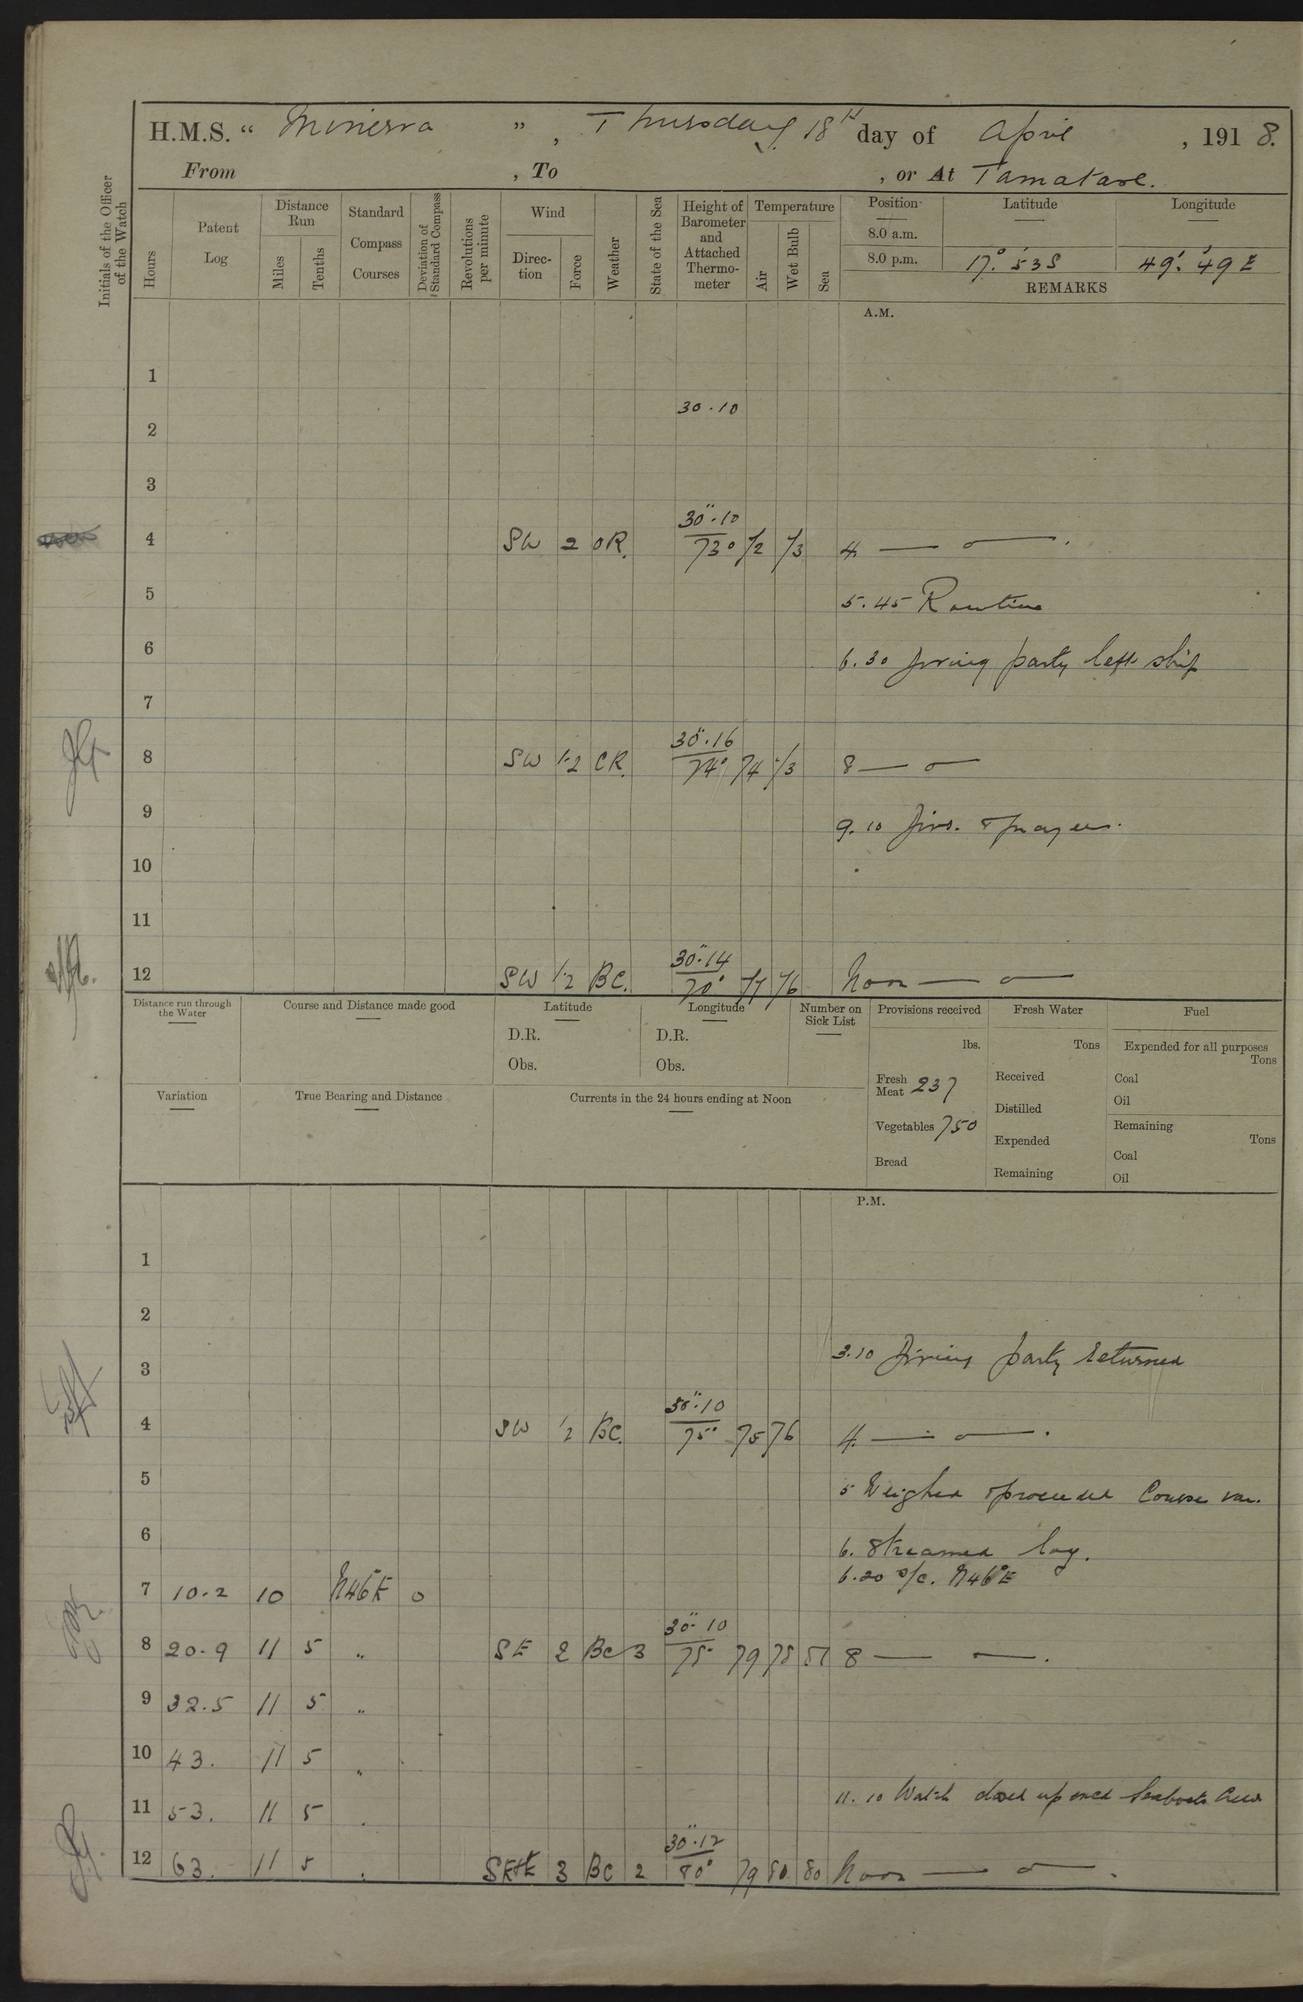 H.M.S. “ Minerva ” , Thursday 18th day of April , 1918.
From , To , or At Tamatave.
Initials of the Officer of the Watch
Hours
Patent Log
Distance Run
Miles
Tenths
Standard Compass Courses
Deviation of Standard Compass
Revolutions per minute
Wind
Direc-tion
Force
Weather
State of the Sea
Height of Barometer and Attached Thermo-meter
Temperature
Air
Wet Bulb
Sea
Position Latitude Longitude
8.0 a.m.
8.0 p.m. 17° 53 S 49° 49 E
REMARKS
A.M.
1
30.10
2
3
30".10
4 SW 2 OR. 73° 4 — o — .
5
5.45 Routine
6
6.30 Diving party left ship
7
30".16
8 SW 1-2 CR. 74° 74 8 — o —
9
9.10 Divs. & prayers.
10
11
30".14
12 SW 1-2 BC. 70° 76 Noon — o —
Distance run through the Water
Course and Distance made good
Latitude
D.R.
Obs.
Longitude
D.R.
Obs.
Number on Sick List
Provisions received
lbs.
Fresh Meat 237
Vegetables 750
Bread
Fresh Water
Tons
Received
Distilled
Expended
Remaining
Fuel
Expended for all purposes
Tons
Coal
Oil
Remaining
Tons
Coal
Oil
Variation
True Bearing and Distance
Currents in the 24 hours ending at Noon
P.M.
1
2
3
3.10 Diving party returned
30".10
4 SW 1/2 BC. 75° 75 76 4. — o — .
5
5 Weighed & proceeded Course var.
6
6. Streamed log.
6.20 a/c. N46°E
7 10.2 10 N46°E 0
30".10
8 20.9 11 5 " SE 2 BC 3 75° 79 78 8 — o — .
9 32.5 11 5 "
10 43. 11 5 "
11 53. 11 5 "
11.10 Watch closed up and Seaboats Crew
30".12
12 63. 11 5 " 3 BC 2 80° 79 80 80 Noon — o — .